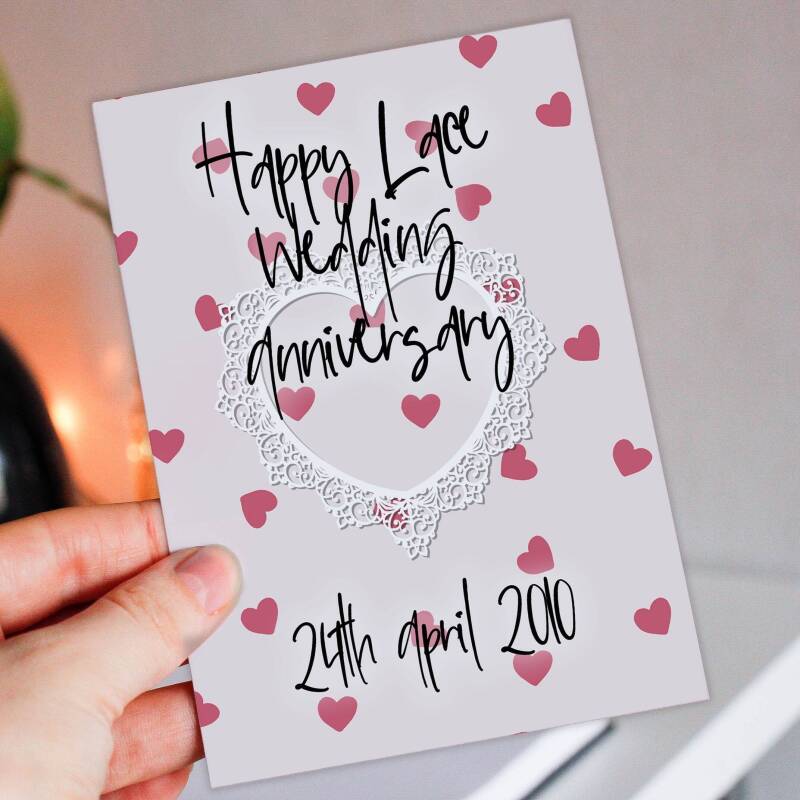 Happy Lace
Wedding
anniversary
24th april 2010